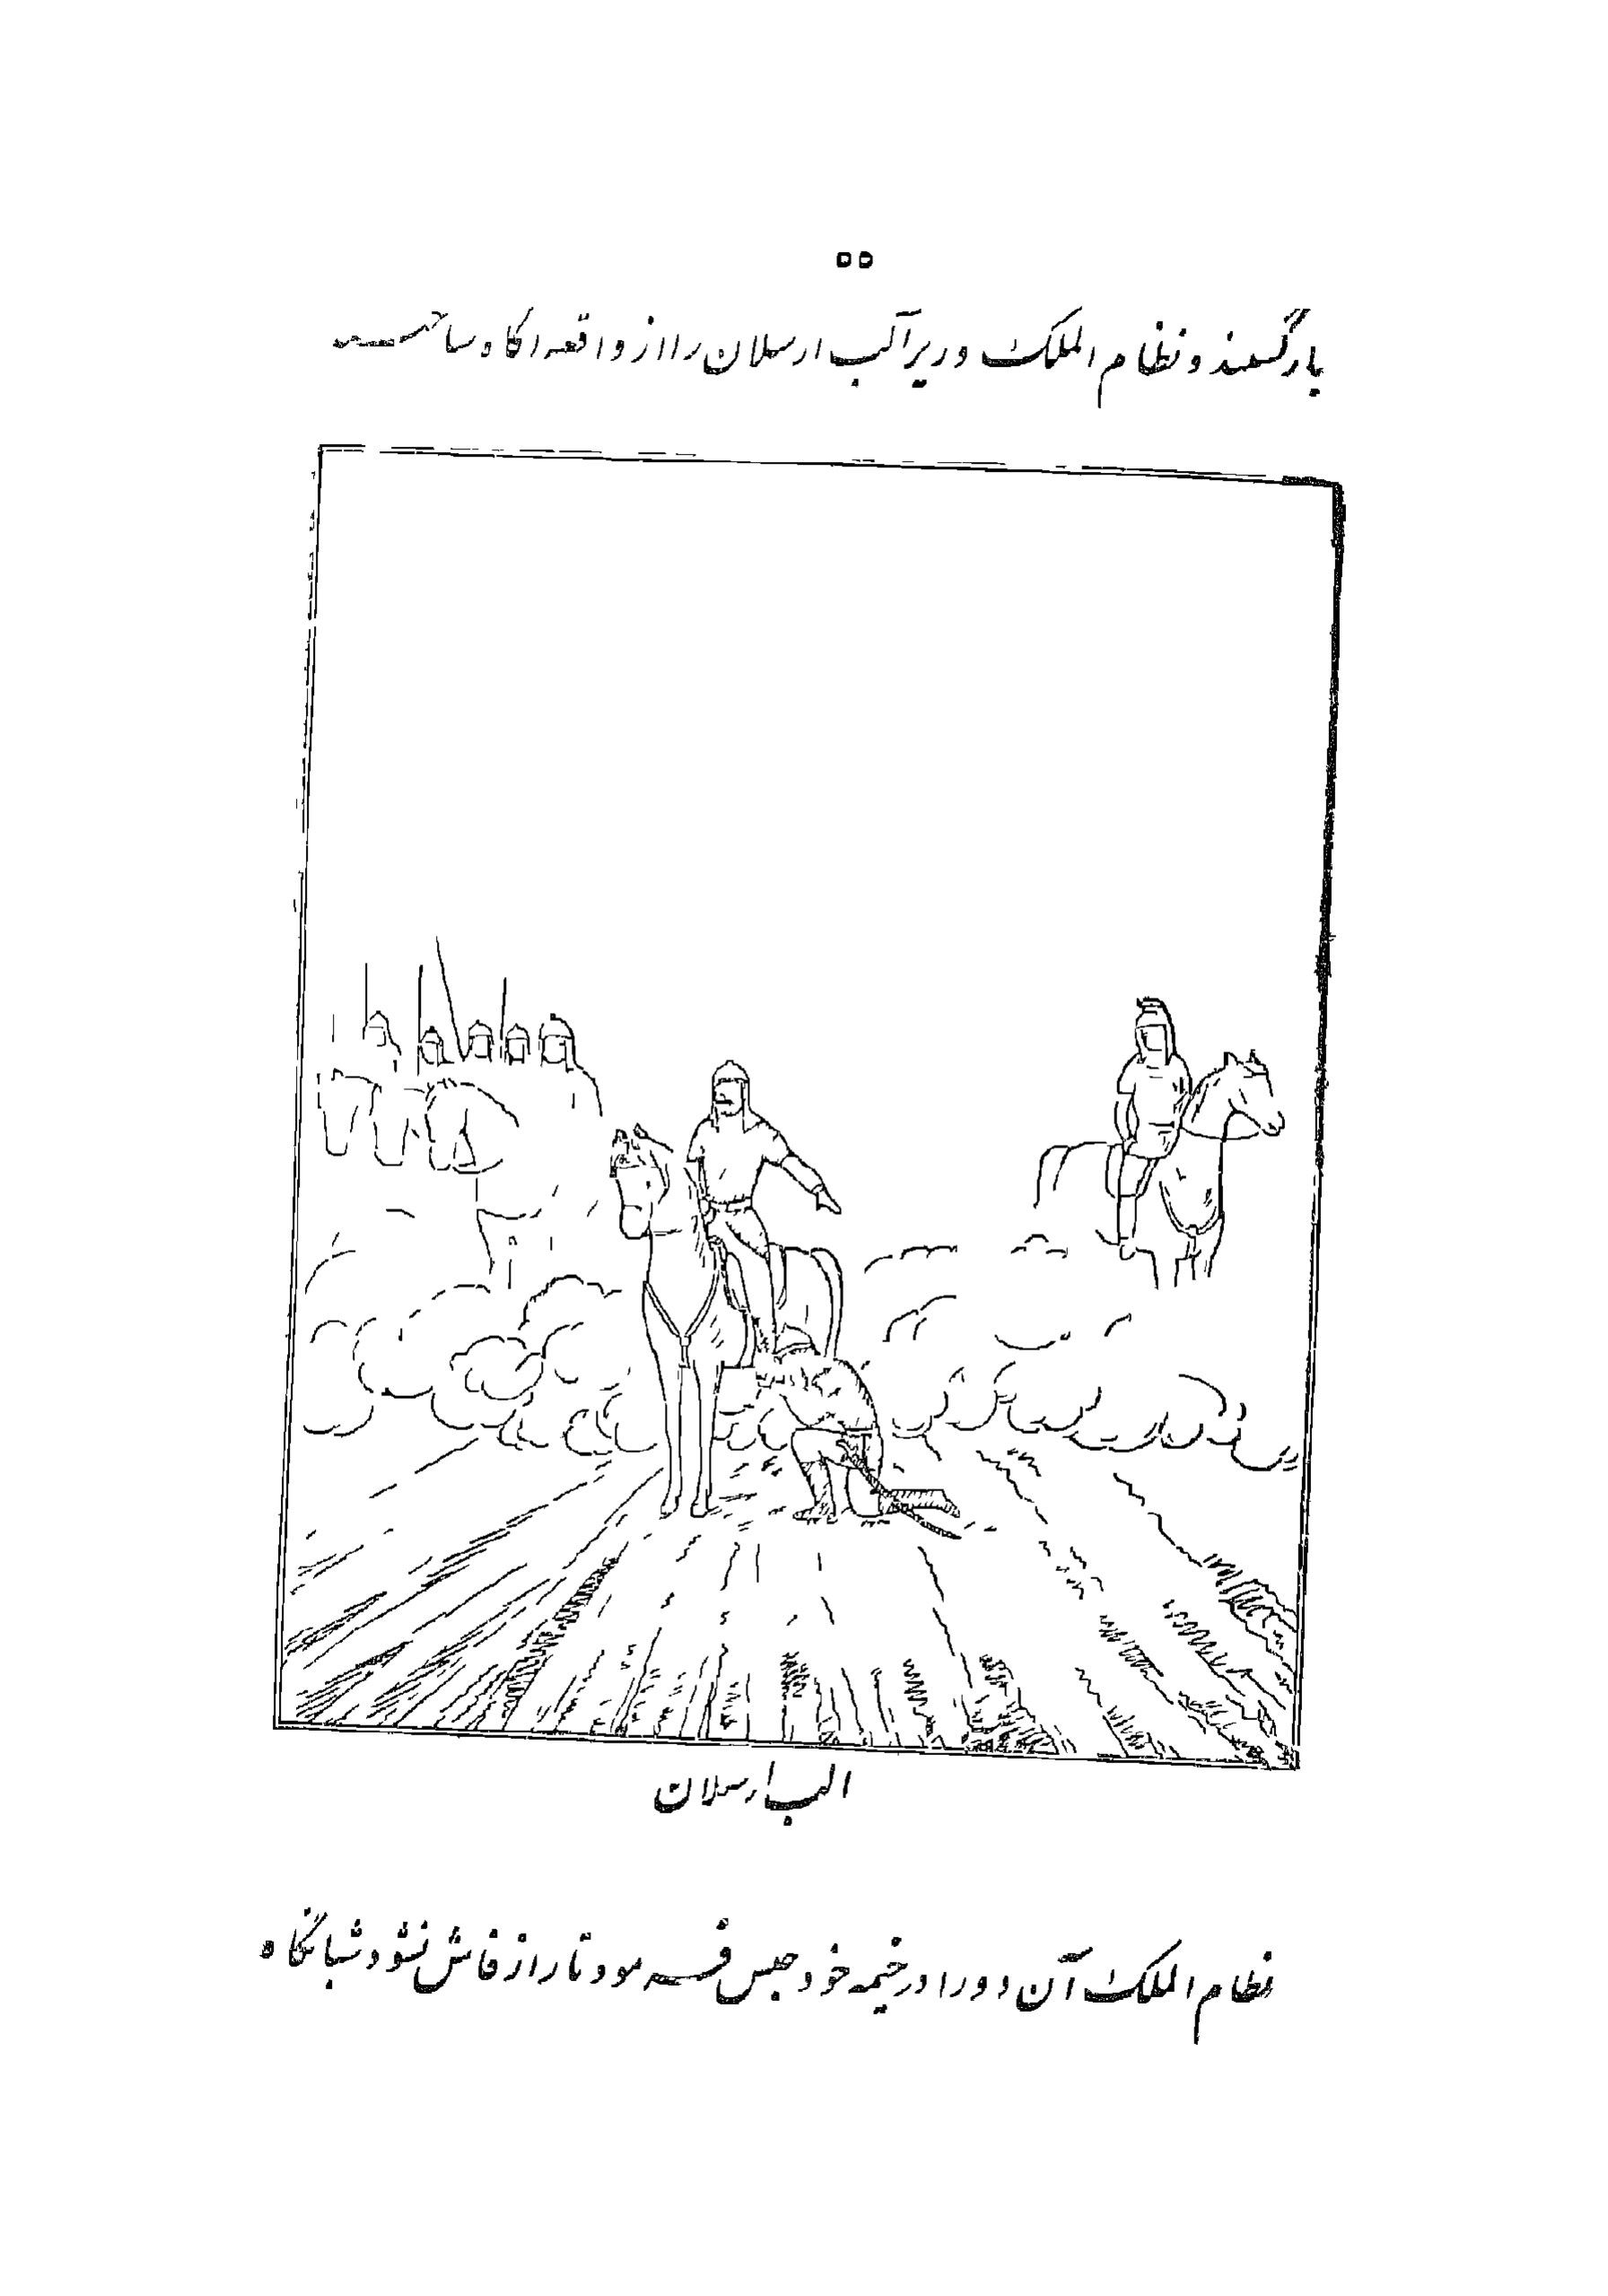 ۵۵
بازگشتند و نظام الملک وزیر آلب ارسلان را از واقعه آگاه ساختند
الب ارسلان
نظام الملک آن دو را در خیمه خود حبس فرمود تا راز فاش نشود شبانگاه